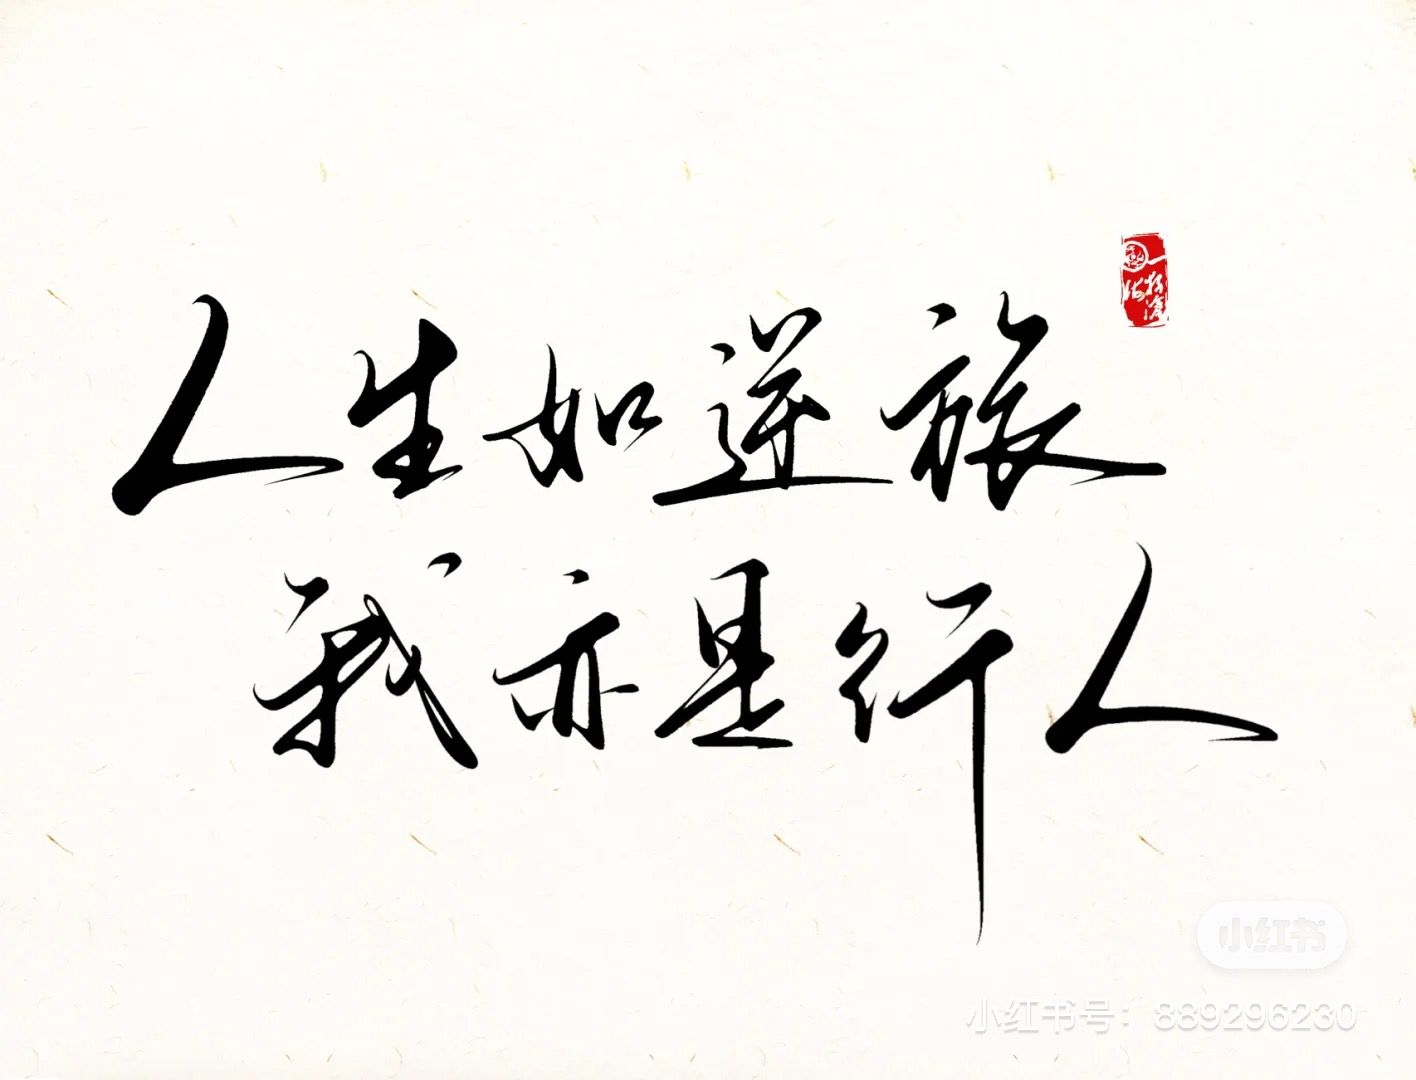 人生如逆旅
我亦是行人
小红书
小红书号：889296230